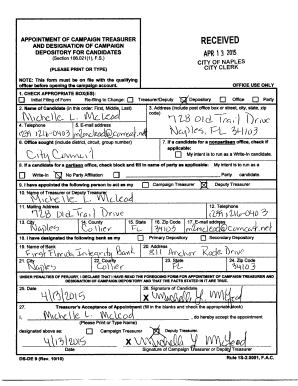 APPOINTMENT OF CAMPAIGN TREASURER
AND DESIGNATION OF CAMPAIGN
DEPOSITORY FOR CANDIDATES
(Section 106.021(1), F.S.)
(PLEASE PRINT OR TYPE)
NOTE: This form must be on file with the qualifying
officer before opening the campaign account.
RECEIVED
APR 13 2015
CITY OF NAPLES
CITY CLERK
OFFICE USE ONLY
1. CHECK APPROPRIATE BOX(ES):
Initial Filing of Form Re-filing to Change: Treasurer/Deputy Depository Office Party
2. Name of Candidate (in this order: First, Middle, Last)
Michelle L. McLeod
3. Address (include post office box or street, city, state, zip code)
728 Old Trail Drive
Naples, FL 34103
4. Telephone
5. E-mail address
(239) 216-0403 m2mcleod@comcast.net
6. Office sought (include district, circuit, group number)
City Council
7. If a candidate for a nonpartisan office, check if applicable:
My intent is to run as a Write-In candidate.
8. If a candidate for a partisan office, check block and fill in name of party as applicable: My intent is to run as a
Write-In No Party Affiliation Party candidate.
9. I have appointed the following person to act as my Campaign Treasurer Deputy Treasurer
10. Name of Treasurer or Deputy Treasurer
Michelle L. McLeod
11. Mailing Address
728 Old Trail Drive
12. Telephone
(239) 216-0403
13. City
Naples
14. County
Collier
15. State
FL
16. Zip Code
34103
17. E-mail address
m2mcleod@comcast.net
18. I have designated the following bank as my Primary Depository Secondary Depository
19. Name of Bank
First Florida Integrity Bank
20. Address
811 Anchor Rode Drive
21. City
Naples
22. County
Collier
23. State
FL
24. Zip Code
34103
UNDER PENALTIES OF PERJURY, I DECLARE THAT I HAVE READ THE FOREGOING FORM FOR APPOINTMENT OF CAMPAIGN TREASURER AND
DESIGNATION OF CAMPAIGN DEPOSITORY AND THAT THE FACTS STATED IN IT ARE TRUE.
25. Date
4/13/2015
26. Signature of Candidate
X Michelle L McLeod
27. Treasurer's Acceptance of Appointment (fill in the blanks and check the appropriate block)
I, Michelle L. McLeod , do hereby accept the appointment
(Please Print or Type Name)
designated above as: Campaign Treasurer Deputy Treasurer.
4/13/2015
X Michelle L McLeod
Date
Signature of Campaign Treasurer or Deputy Treasurer
DS-DE 9 (Rev. 10/10)
Rule 1S-2.0001, F.A.C.